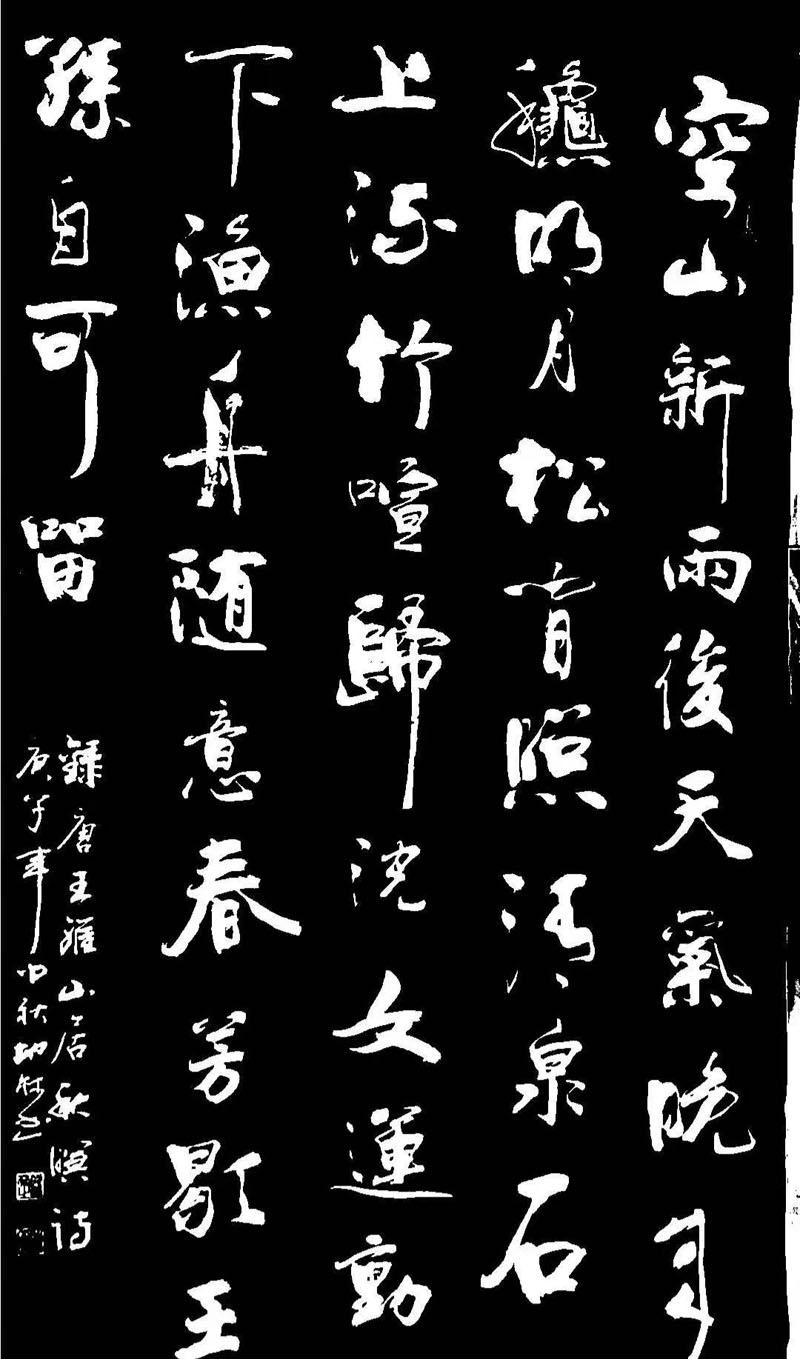 空山新雨後天氣晚来
龝明月松間照清泉石
上流竹喧歸浣女蓮動
下漁舟随意春芳歇王
孫自可留
録唐王維山居秋暝詩
庚午年中秋书